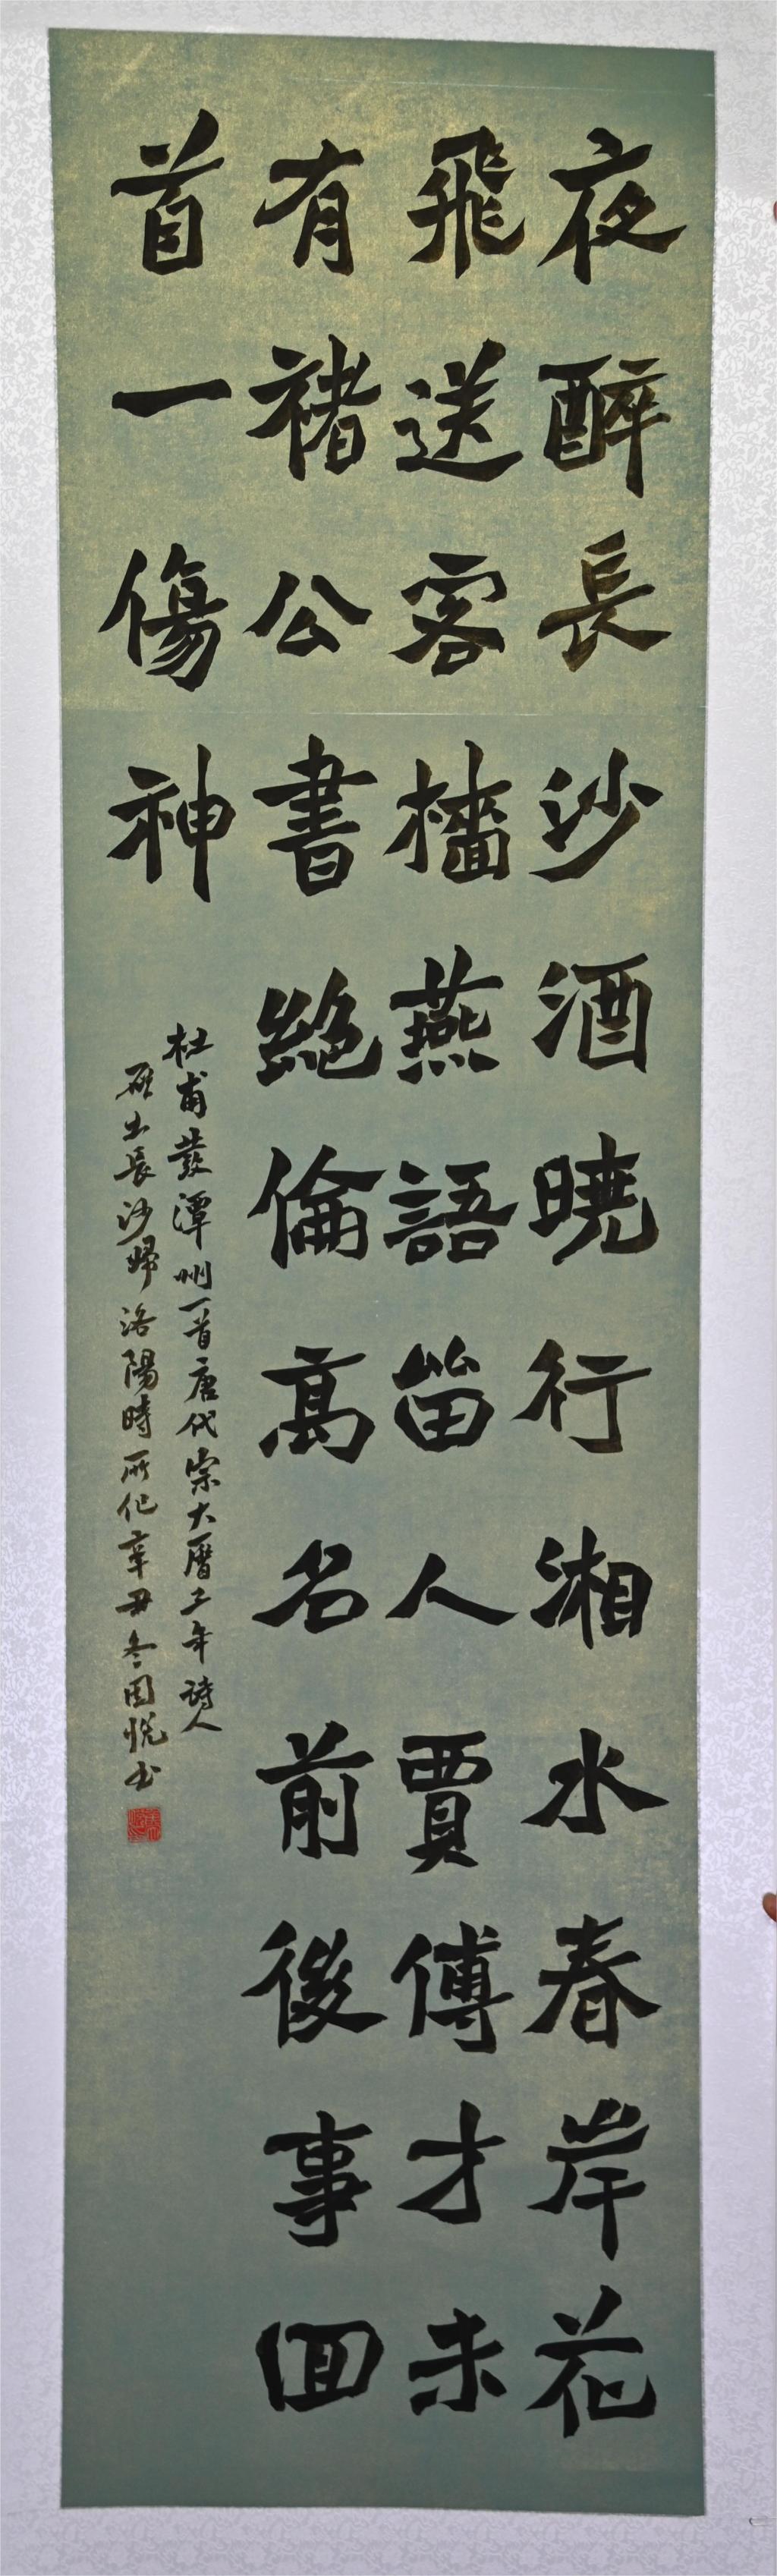 夜醉長沙酒曉行湘水春岸花
飛送客檣燕語留人賈傅才未
有褚公書絕倫高名前後事回
首一傷神
杜甫發潭州一首唐代宗大曆五年詩人
離長沙歸洛陽時所作辛丑冬国悦书